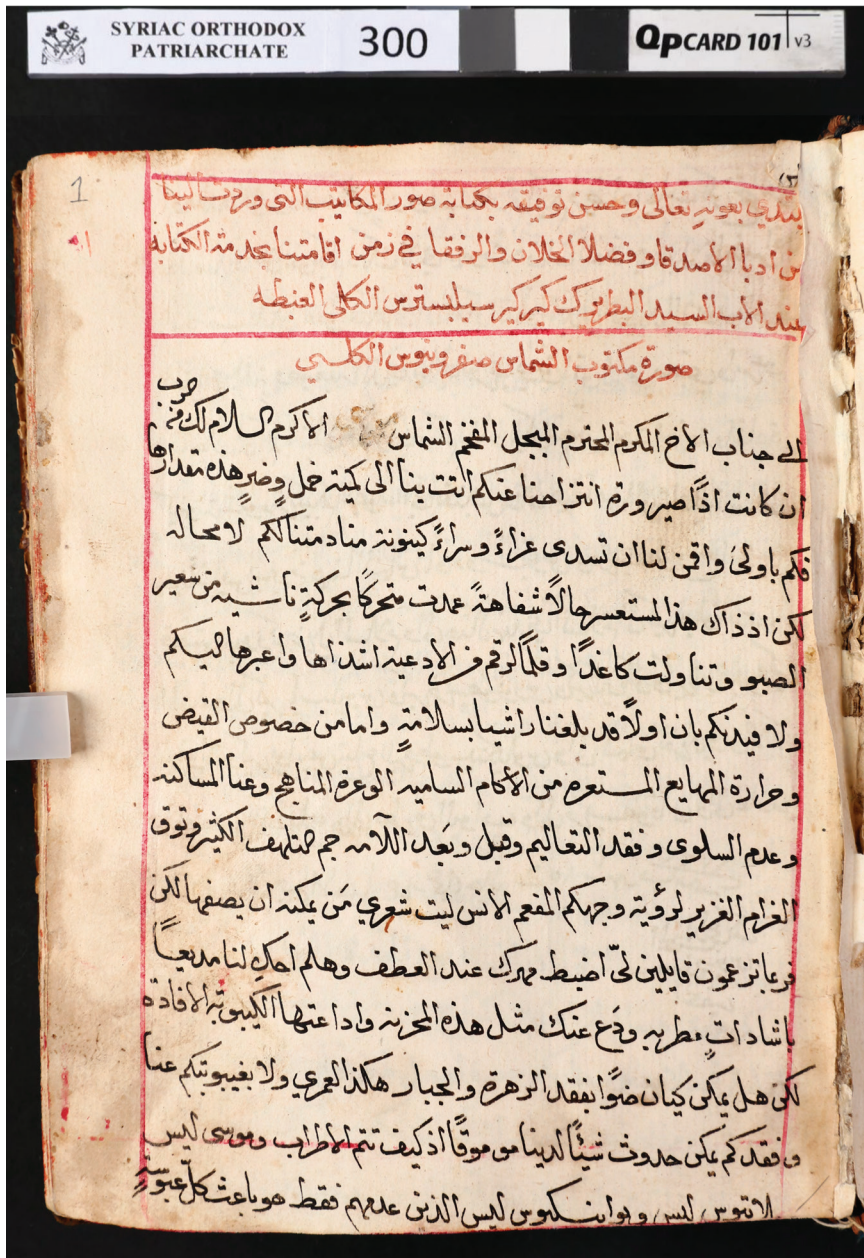 SYRIAC ORTHODOX
PATRIARCHATE
300
QPCARD 101 v3
1
نبتدي بعونه تعالى وحسن توفيقه بكتابة صور المكاتيب التى وردت الينا
من ادبا الاصدقا وفضلا الخلان والرفقا في زمن اقامتنا بخدمة الكتابة
عند الاب السيد البطريرك كير كير سيلبسترس الكلى الغبطه
صورة مكتوب الشماس صفرونيوس الكلسي
الى جناب الاخ المكرم المحترم المبجل المفخم الشماس الاكرم السلام لك من
ان كانت اذًا صيرورة انتزاحنا عنكم اتت بنا الى كمية خمل وضرٍ هذه تعدارها
فكم باولىَ واقمن لنا ان تسدى عزاءً وسراءً كينونة منادمتنا لكم لا محاله
لكن اذ ذاك هذا المستعسر حالاً شفاهةً عمدت متحركًا بحركةٍ ناشيه من سعير
الصبو وتناولت كاغدًا وقلمًا لرقم من الادعية اشذاها واعبرها اليكم
ولافيدنكم بان اولاً قد بلغنا راشيا بسلامةٍ واما من خصوص القيض
وحرارة المهايع المستعره من الاكام الساميه الوعرة المناهج وعنا المساكنه
وعدم السلوى وفقد التعاليم وقبل وبَعد اللآمه جم التلهف الكثير وتوق
الغرام الغزير لرؤية وجهكم المفعم الانس ليت شعري مَن يمكنه ان يصفها لكن
فربما تزعمون قايلين لىّ اضبط مهرك عند العطف وهلم احكِ لنا مديعاً
باشاداتٍ مطربه ودَع عنك مثل هذه المحزنه واداعتها الكيبوبة الافادة
لكن هل يمكن كيان ضوًا بفقد الزهرة والجبار هكذا لعمري ولا بغيبوبتكم عنا
وفقدكم يمكن حدوث شيئًا لدينا موموقًا اذ كيف تتم الاطراب وموسى ليس
ليس الذين عدمهم فقط هو باعث كلّ عبوسةٍ